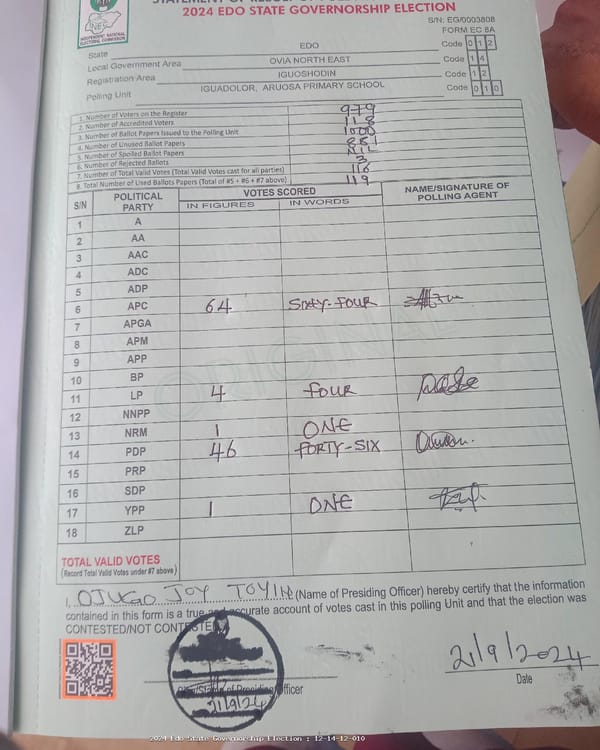 2024 EDO STATE GOVERNORSHIP ELECTION
S/N: EG/0003808
FORM EC 8A
INDEPENDENT NATIONAL ELECTORAL COMMISSION
State EDO Code 0 1 2
Local Government Area OVIA NORTH EAST Code 1 4
Registration Area IGUOSHODIN Code 1 2
Polling Unit IGUADOLOR, ARUOSA PRIMARY SCHOOL Code 0 1 0
1. Number of Voters on the Register 979
2. Number of Accredited Voters 118
3. Number of Ballot Papers Issued to the Polling Unit 1000
4. Number of Unused Ballot Papers 881
5. Number of Spoiled Ballot Papers NIL
6. Number of Rejected Ballots 3
7. Number of Total Valid Votes (Total Valid Votes cast for all parties) 116
8. Total Number of Used Ballots Papers (Total of #5 + #6 + #7 above) 119
S/N POLITICAL PARTY VOTES SCORED NAME/SIGNATURE OF POLLING AGENT
IN FIGURES IN WORDS
1 A
2 AA
3 AAC
4 ADC
5 ADP
6 APC 64 SIXTY-FOUR
7 APGA
8 APM
9 APP
10 BP
11 LP 4 FOUR
12 NNPP
13 NRM 1 ONE
14 PDP 46 FORTY-SIX
15 PRP
16 SDP
17 YPP 1 ONE
18 ZLP
ORIGINAL
TOTAL VALID VOTES
(Record Total Valid Votes under #7 above)
I, OJUGO JOY TOYIN (Name of Presiding Officer) hereby certify that the information
contained in this form is a true and accurate account of votes cast in this polling Unit and that the election was
CONTESTED/NOT CONTESTED
of Presiding Officer
21/9/24
21/9/2024
Date
2024 Edo State Governorship Election : 12-14-12-010